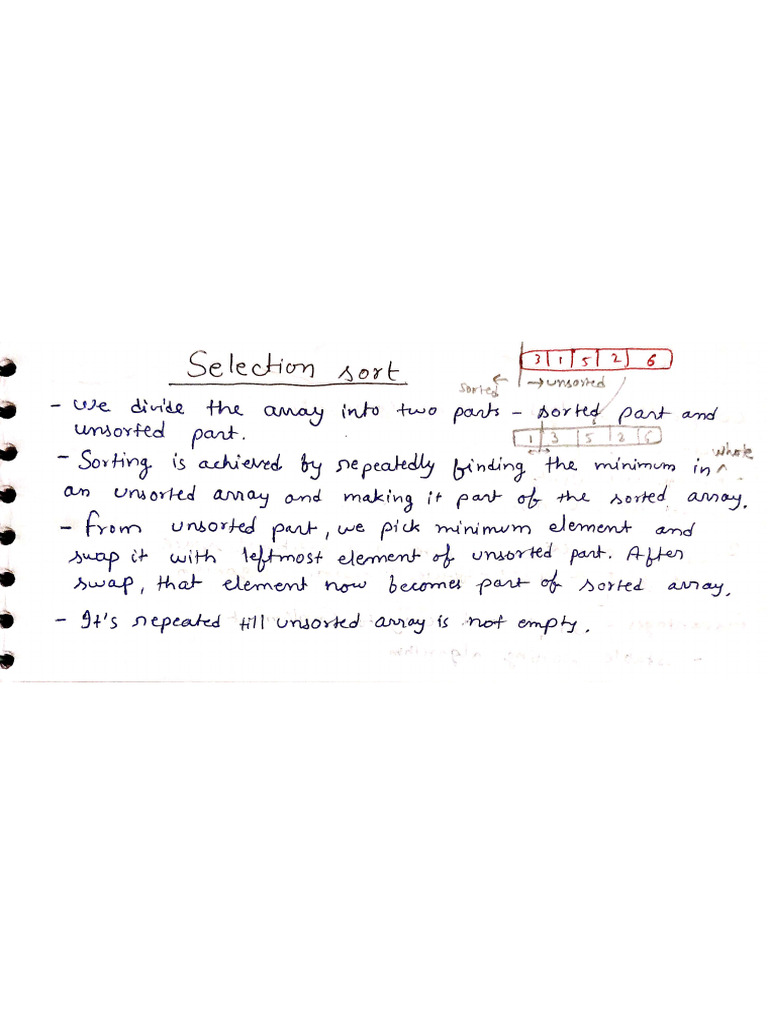 Selection sort
3 1 5 2 6
sorted ← → unsorted
- We divide the array into two parts - sorted part and
unsorted part.
1 3 5 2 6
- Sorting is achieved by repeatedly finding the minimum in whole
an unsorted array and making it part of the sorted array.
- From unsorted part, we pick minimum element and
swap it with leftmost element of unsorted part. After
swap, that element now becomes part of sorted array.
- It's repeated till unsorted array is not empty.